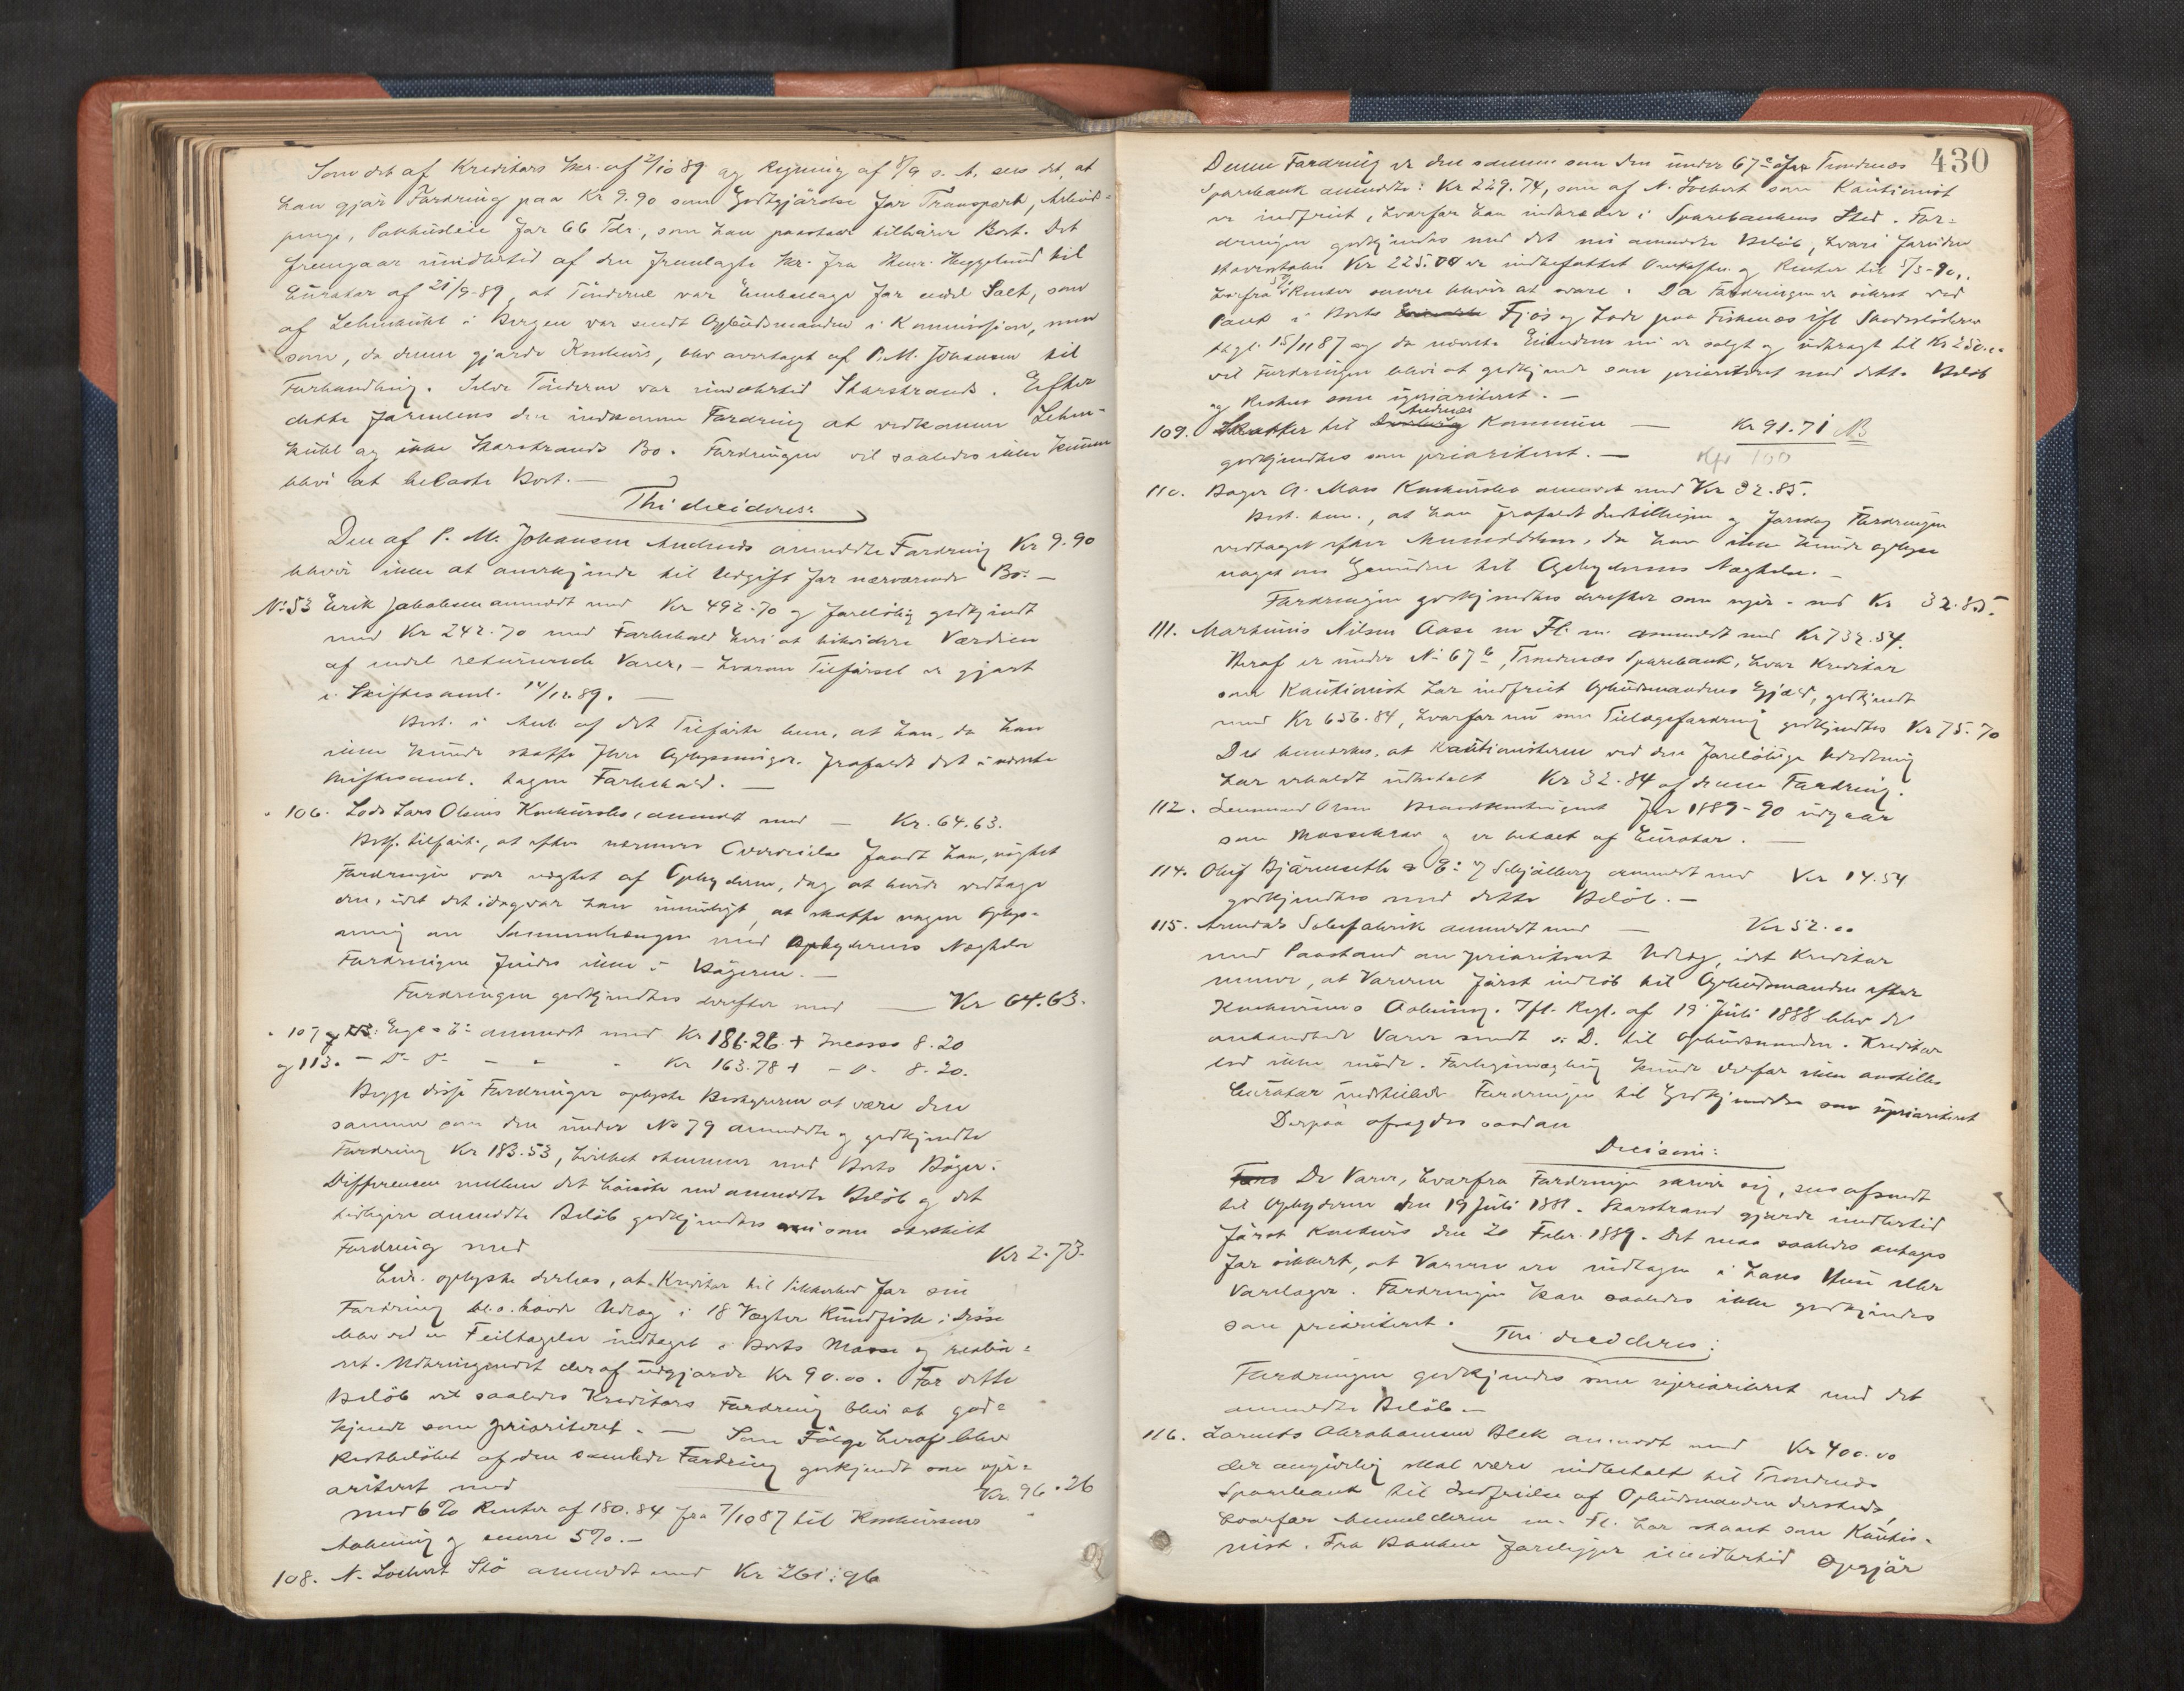 Som det af Kreditors Skr. af 2/10 89 og Regning af 8/9 s. A. sees det, at
han gjør Fordring paa Kr 9.90 som Godtgjørelse for Transport, Arbeids-
penge, Pakhusleie for 66 Tdr., som han paastaar tilhører Boet. Det
fremgaar imidlertid af den fremlagte Skr. fra Henr. Heggelund til
Curator af 21/9-89, at Tønderne var Emballage for endel Salt, som
af Lehmkuhl i Bergen var sendt Opbudsmanden i Kommission, men
som, da denne gjorde Konkurs, blev overtaget af P. M. Johansen til
Forhandling. Selve Tønderne var imidlertid Skarstrands. Efter
dette formenes den indkomne Fordring at vedkomme Lehm-
kuhl og ikke Skarstrands Bo. Fordringen vil saaledes ikke kunne
blive at belaste Boet. —
Thi decideres:
Den af P. M. Johansen Andenæs anmeldte Fordring Kr 9.90
bliver ikke at anerkjende til Udgift for nærværende Bo. —
No 53 Erik Jakobsen anmeldt med Kr 492.70 og foreløbig godkjendt
med Kr 242.70 med Forbehold hvis at likvidere Værdien
af endel returnerede Varer, — hvorom Tilførsel er gjort
i Skiftesaml. 14/12 89. —
Best. i Anl. af det Tilførte bem. at han, da han
ikke kunde skaffe flere Oplysninger frafaldt det i nævnte
Skiftesaml. tagne Forbehold. —
106. Lods Lars Olsens Konkursbo, anmeldt med — Kr. 64.63.
Best. tilført, at efter nærmere Overveielse fandt han, uagtet
Fordringen var nægtet af Opbyderen, dog at burde vedtage
den, idet det idag var ham umuligt, at skaffe nogen Oplys-
ning om Sammenhængen med Opbyderens Nægtelse
Fordringen findes ikke i Bøgerne. —
Fordringen godkjendtes derefter med — Kr 64.63.
107 og anmeldt med Kr 186.26 + Incasso 8.20
og 113. — Do Do — " - Kr 163.78 + — D. 8.20.
Begge disse Fordringer oplyste Bestyreren at være den
samme som den under No 79 anmeldte og godkjendte
Fordring Kr 183.53, hvilket stemmer med Boets Bøger.
Differencen mellem det høieste nu anmeldte Beløb og det
tidligere anmeldte Beløb godkjendtes som særskilt
Fordring med — Kr 2.73.
Cur. oplyste derhos, at Kreditor til Sikkerhed for sin
Fordring bl. a. havde Udlæg i 18 Vægter Rundfisk; disse
blev ved en Feiltagelse indtaget i Boets Masse og realise-
ret. Udbringendet deraf udgjorde Kr 90.00. For dette
Beløb vil saaledes Kreditors Fordring blive at god-
kjende som prioriteret. — Som Følge heraf blev
Restbeløbet af den samlede Fordring godkjendt som upri-
oriteret med — Kr. 96.26
med 6% Renter af 180.84 fra 7/10 87 til Konkursens
Aabning og senere 5%. —
108. N. Lockert Stø anmeldt med Kr 261.96
430
Denne Fordring er den samme som den under 67 c af Trondenæs
Sparebank anmeldte: Kr 229.74, som af N. Lockert som Kautionist
er indfriet, hvorfor han indtræder i Sparebankens Sted. For-
dringen godkjendes med det nu anmeldte Beløb, hvori foruden
Hovedstolen Kr 225.00 er indbefattet Omkostn. og Renter til 5/3-90,
hvorfra 5% Renter senere bliver at svare. Da Fordringen er sikret ved
Pant i Boets Fjøs og Lade paa Fiskenæs ifl. Skadesløsbrev
tegl. 15/11 87 og da nævnte Eiendom nu er solgt og udbragt til Kr 250.00
vil Fordringen blive at godkjende som prioriteret med dette Beløb
og Resten som uprioriteret. —
109. Skatter til Andenes Kommune — Kr 91.71 NB
godkjendtes som prioriteret. — 100
110. Bager A. Moes Konkursbo anmeldt med Kr 32.85.
Best. bem., at han frafaldt Indstillingen og foreslog Fordringen
vedtaget efter Anmeldelsen, da han ikke kunde oplyse
noget om Grunden til Opbyderens Nægtelse. —
Fordringen godkjendtes derefter som upr. med Kr 32.85.
111. Martinus Nilsen Aase m. Fl. m. anmeldt med Kr 732.54.
Heraf er under No 67 b, Trondenæs Sparebank, hvor Kreditor
som Kautionist har indfriet Opbudsmandens Gjæld, godkjendt
med Kr 656.84, hvorfor nu som Tillægsfordring godkjendtes Kr 75.70
Det bemærkes, at Kautionisterne ved den foreløbige Uddeling
har erholdt udbetalt Kr 32.84 af denne Fordring.
112. Lensmand Olsen Brandkontingent for 1889-90 udgaar
som Massekrav og er betalt af Curator. —
114. Oluf Bjørnseth & Co anmeldt med Kr 14.54
godkjendtes med dette Beløb. —
115. Arendals Tobafabrik anmeldt med — Kr 52.00
med Paastand om prioriteret Udlæg, idet Kreditor
mener, at Varerne først indløb til Opbudsmanden efter
Konkursens Aabning. Ifl. Regl. af 19 Juli 1888 blev de
omhandlede Varer sendt s. D. til Opbudsmanden. Kreditor
lod ikke møde. Forligsmægling kunde derfor ikke anstilles
Curator indstillede Fordringen til Godkjendelse som uprioriteret
Derpaa afsagdes saadan
Decision:
De Varer, hvorfra Fordringen skriver sig, sees afsendt
til Opbyderen den 19 Juli 1888. Skarstrand gjorde imidlertid
først Konkurs den 20 Febr. 1889. Det maa saaledes antages
for sikkert, at Varerne ere indtagne i hans Hus eller
Varelager. Fordringen kan saaledes ikke godkjendes
som prioriteret.
Thi decideres:
Fordringen godkjendes som uprioriteret med det
anmeldte Beløb. —
116. Abrahamsen Blek anmeldt med Kr 400.00
der angivelig skal være indbetalt til Trondenæs
Sparebank til Indfrielse af Opbudsmanden dersteds,
hvorfor Anmelderen m. Fl. har staaet som Kautio-
nist. Fra Banken foreligger imidlertid Opgjør